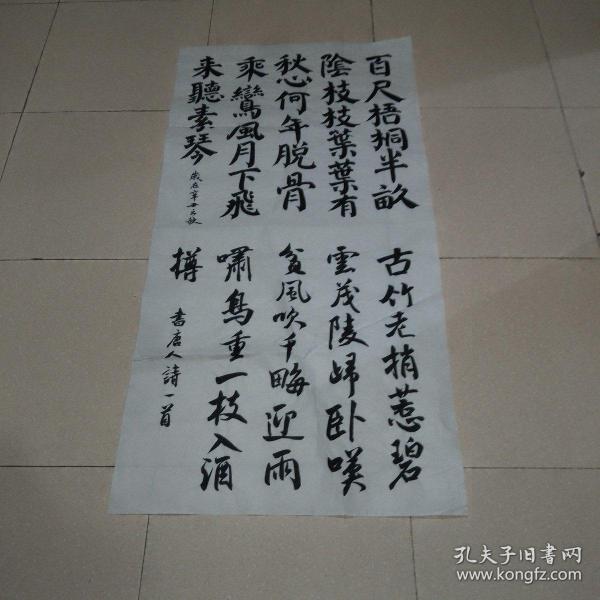 百尺梧桐半畝
陰枝枝葉葉有
秋心何年脫骨
乘鸞風月下飛
来聽素琴
歲在辛丑之秋
古竹老梢惹碧
雲茂陵歸卧嘆
貧風吹千畮迎雨
嘯鳥重一枝入酒
樽
書唐人詩一首
孔夫子旧書网
www.kongfz.com